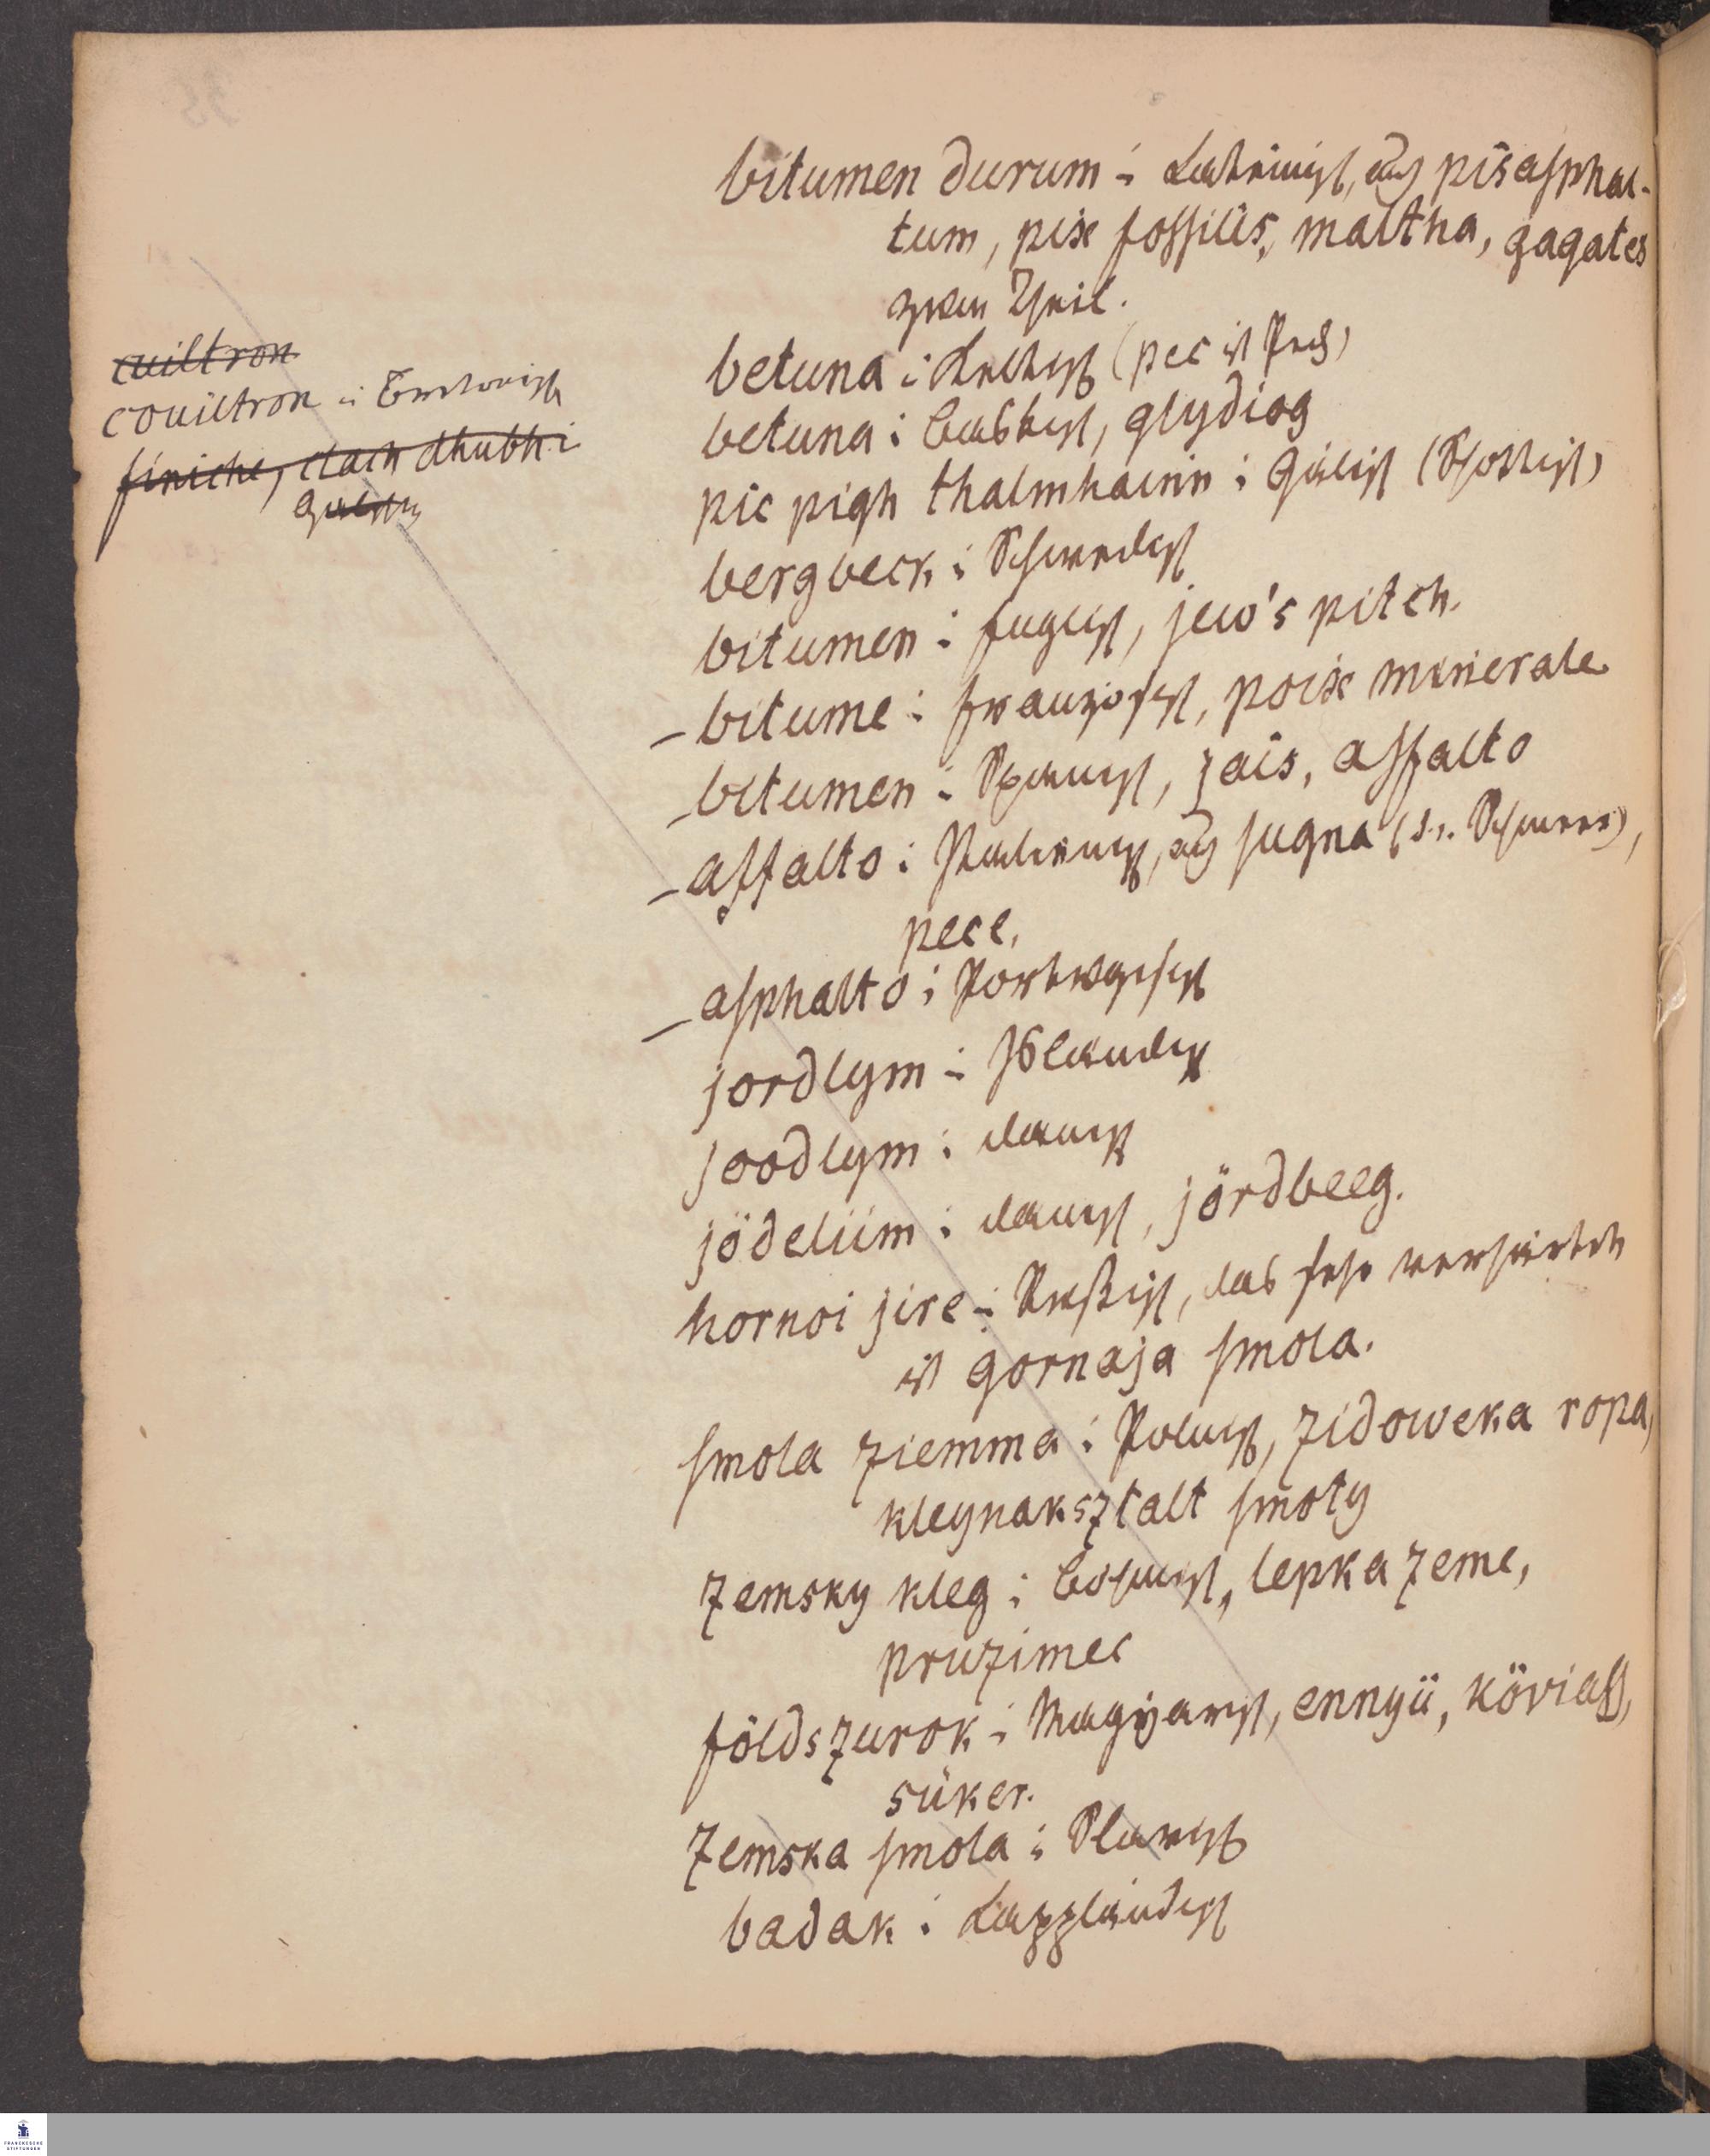 bitumen durum i Lateinisch, auch pisasphal-
tum, pix fossilis, maltha, gagates
zum Theil.
cuiltron
couiltron i
finiche, clach dhubh i
Galisch
betuna i (pec ist Pech)
betuna i Baskisch, glydiog
pic pigh thalmhainn i Galisch (Schottisch)
bergbeck i Schwedisch
bitumen i Englisch, jew's pitch.
– bitume i Französisch, poix minerale
– bitumen i Spanisch, jais, asfalto
– asfalto i Italienisch, auch sugna (d. i. Schmeer),
pece,
– asphalto i Portugisisch
jordlym i Isländisch
joodlym i dänisch
jödeliim i dänisch, jördbeeg.
hornoi jire i Russisch, das sehr verhärtete
ist gornaja smola.
smola ziemma i Polnisch, zidoweka ropa,
kleynaksztalt smoty
zemsky kleg i Böhmisch, lepka zeme,
pruzimec
földszurok i Magÿarisch, ennyü, köviasz,
süker.
zemska smola i Slavisch
badak i Lappländisch
FRANCKESCHE
STIFTUNGEN